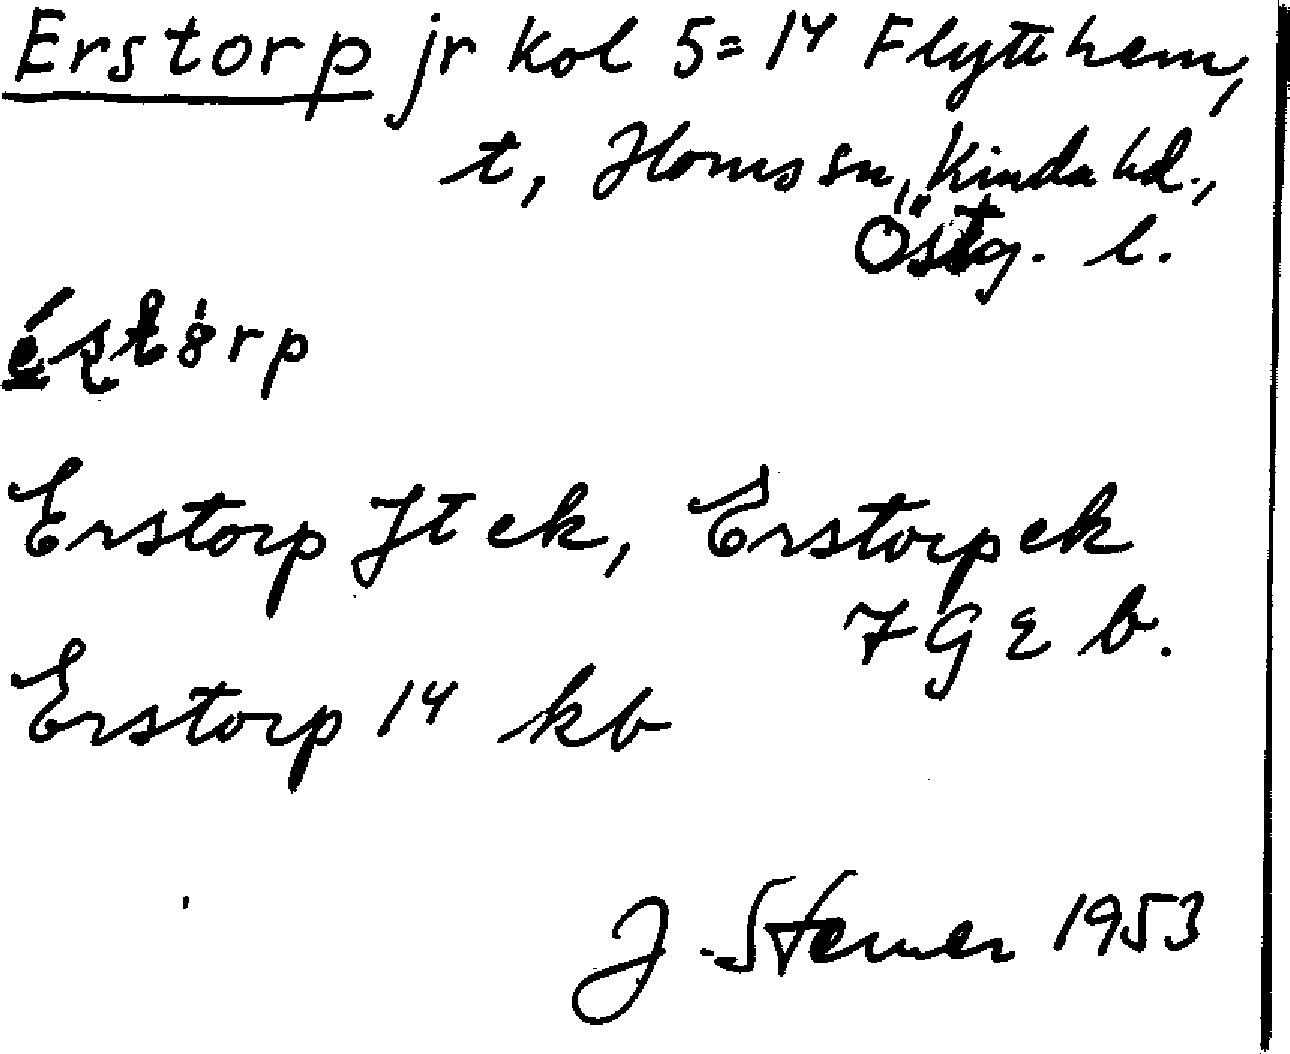 Erstorp jr kol 5=14 Flytthem,
t, Horns sn, Kinda hd.,
Östg. l.
Erstorp Jt ek, Erstorp ek
7 G E b.
Erstorp 14 kb
J Sterner 1953